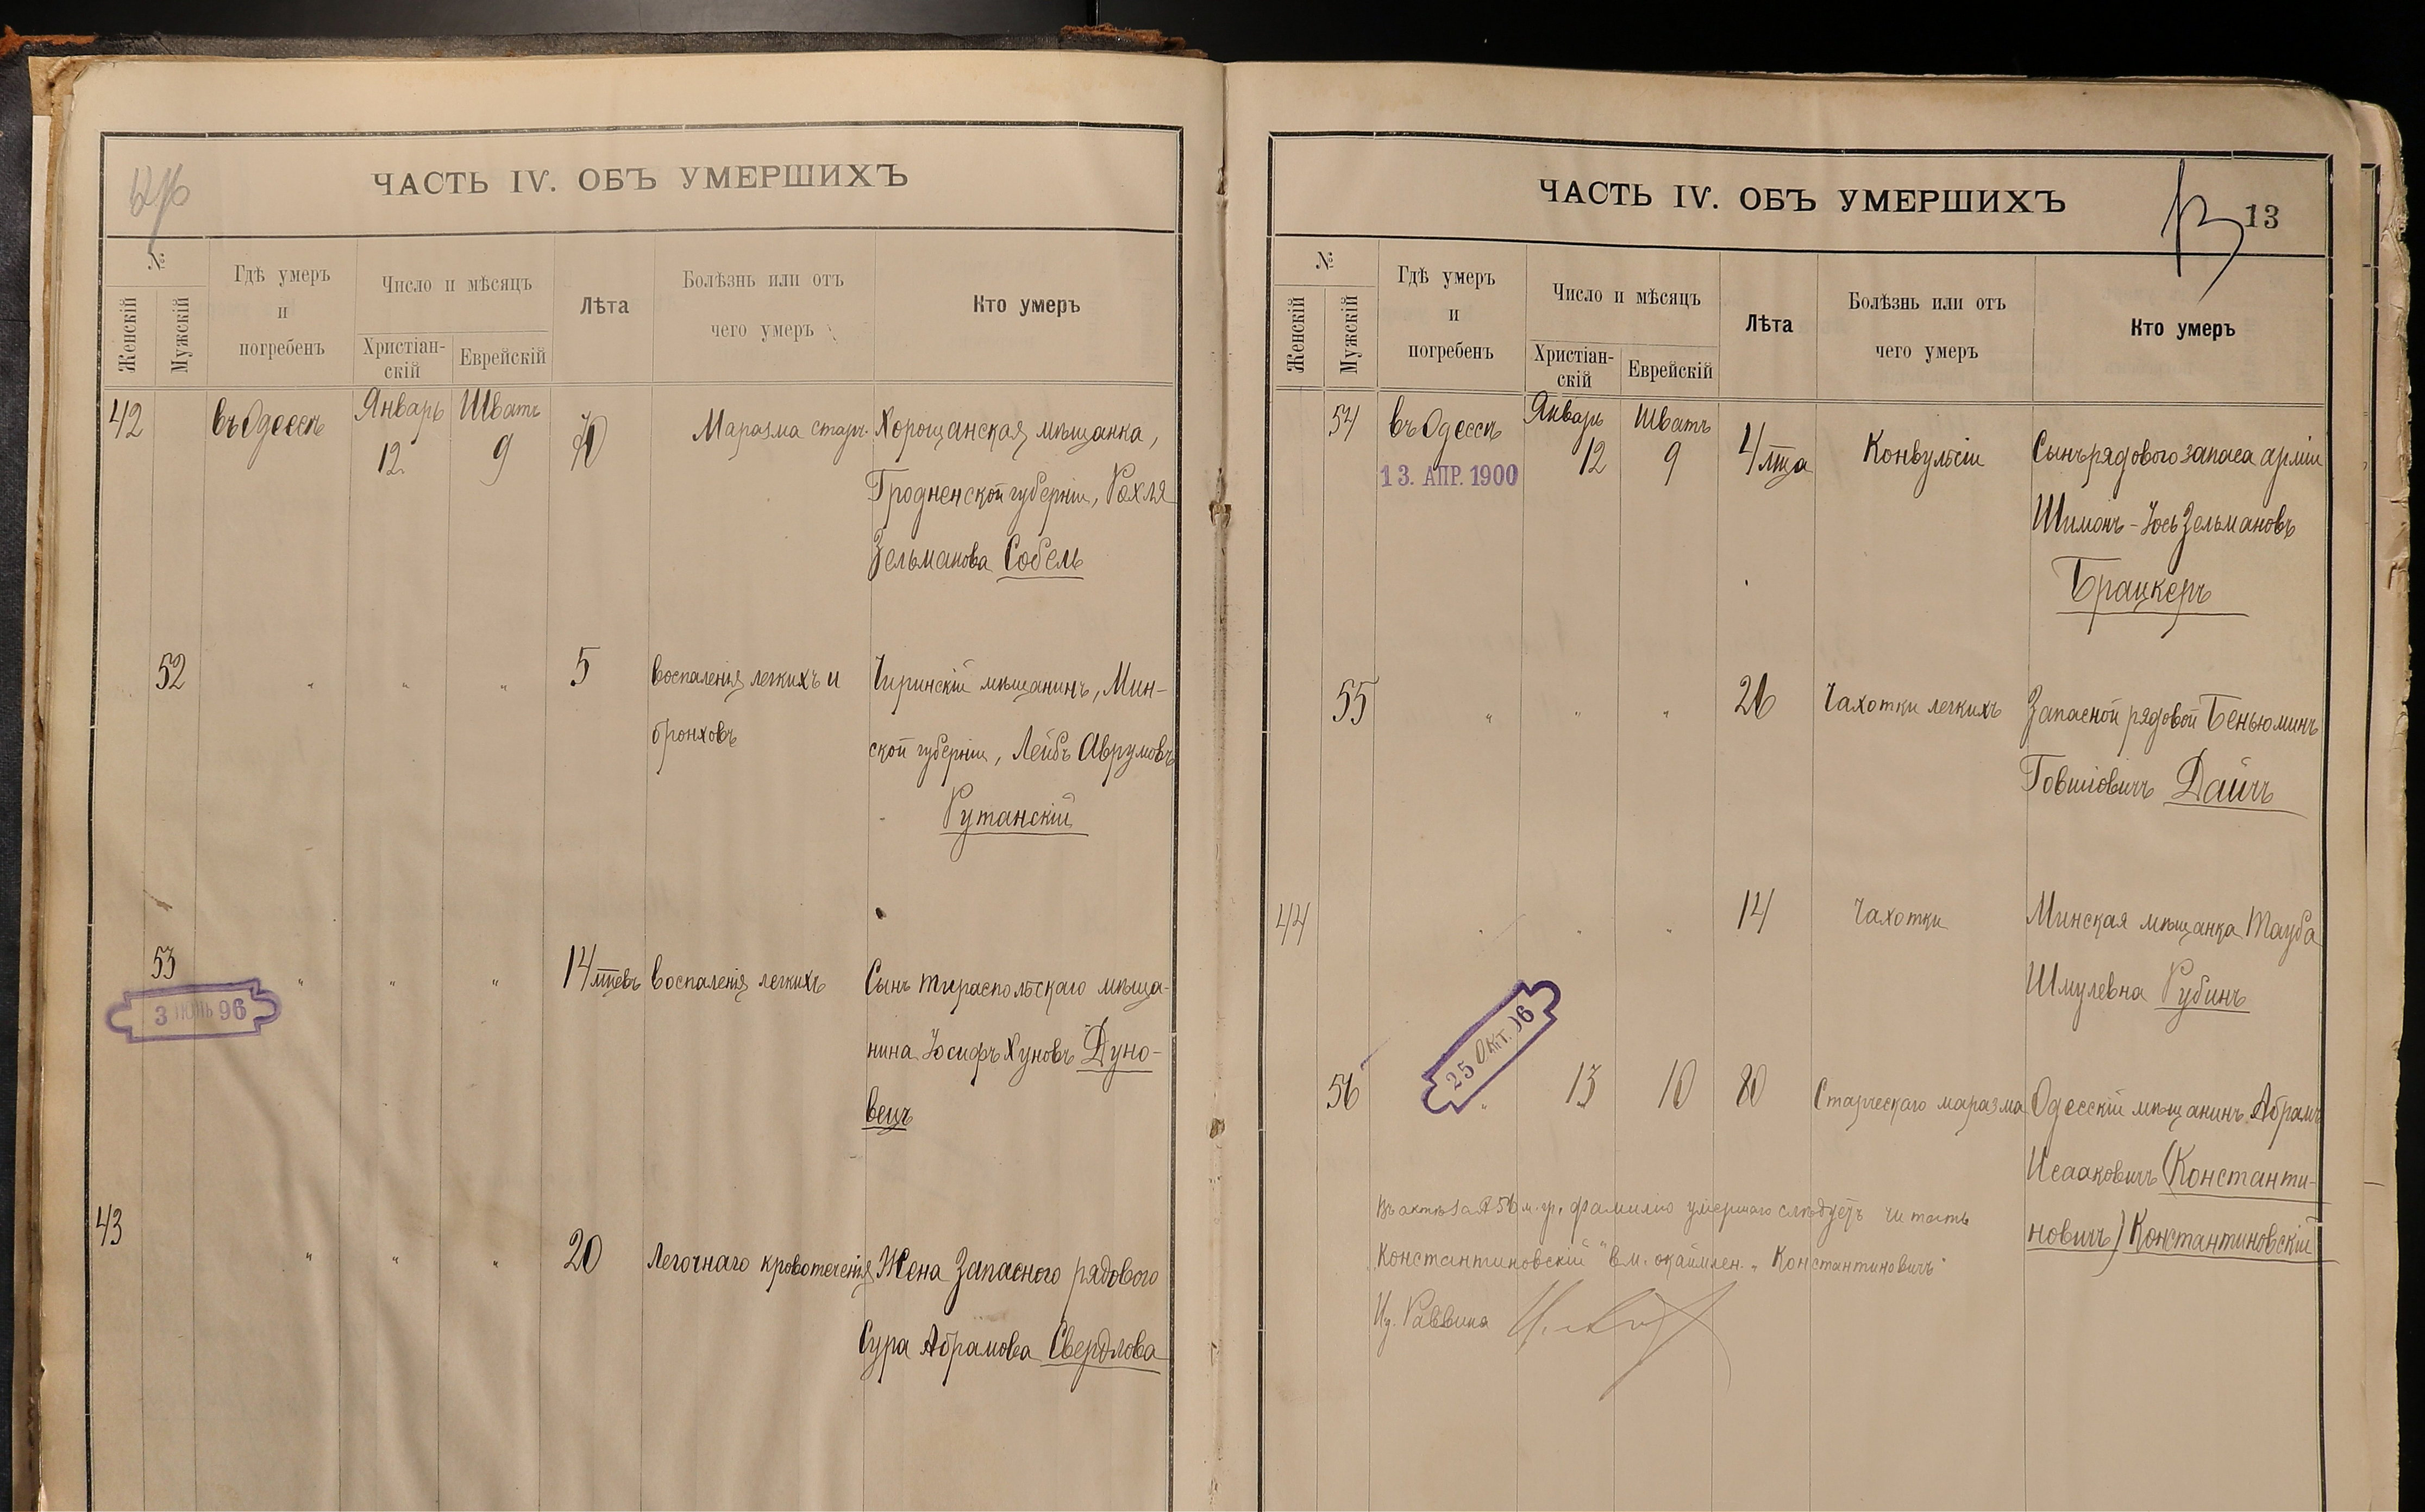 ЧАСТЬ IV. ОБЪ УМЕРШИХЪ
№
Женскій
Мужскій
Гдѣ умеръ
и
погребенъ
Число и мѣсяцъ
Христіан-
скій
Еврейскій
Лѣта
Болѣзнь или отъ
чего умеръ
Кто умеръ
42 въ Одессѣ Январь 12. Шватъ 9 70 Маразма старч. Хорощанская мѣщанка,
Гродненской губерніи, Рохля
Зельманова Собель
52 " " " 5 воспаленія легкихъ и Чиринскій мѣщанинъ, Мин-
бронховъ ской губерніи, Лейбъ Аврумовъ
Рутанскій
53 " " " 14 мцевъ воспаленія легкихъ Сынъ тираспольскаго мѣща-
3 ІЮНЬ 96
нина Іосифъ Хуновъ Дуно-
вецъ
43 " " " 20 Легочнаго кровотеченія Жена Запасного рядового
Сура Абрамова Свердлова
ЧАСТЬ IV. ОБЪ УМЕРШИХЪ
13 13
№
Женскій
Мужскій
Гдѣ умеръ
и
погребенъ
Число и мѣсяцъ
Христіан-
скій
Еврейскій
Лѣта
Болѣзнь или отъ
чего умеръ
Кто умеръ
54 въ Одессѣ Январь 12 Шватъ 9 4 мца Конвульсіи Сынъ рядового запаса арміи
13. АПР. 1900
Шимонъ-Іось Зельмановъ
Брацкеръ
55 " " " 26 Чахотки легкихъ Запасной рядовой Беньюминъ
Говшіовичъ Дайчъ
44 " " " 14 Чахотки Минская мѣщанка Тауба
Шмулевна Рубинъ
25 Окт. 96
56 " 13 10 80 Старческаго маразма Одесскій мѣщанинъ Абрамъ
Исааковичъ (Константи-
новичъ) Константиновскій
Въ актѣ за № 56 м. гр. фамилію умершаго слѣдуетъ читать
Константиновскій" вм. окаймлен. „Константиновичъ"
И. Раввина